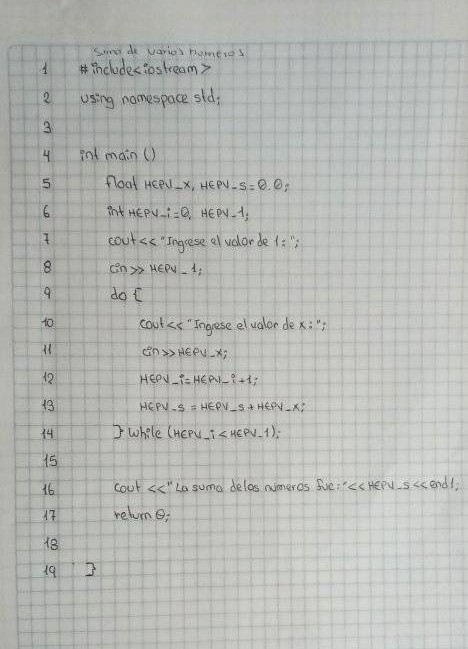 Suma de varios numeros
1 #include<iostream>
2 using namespace std;
3
4 int main ()
5 float HEPV_x, HEPV_s=0.0;
6 int HEPV_i=0, HEPV_1;
7 cout<< "Ingrese el valor de 1:";
8 cin>> HEPV_1;
9 do {
10 cout<< "Ingrese el valor de x:";
11 cin>>HEPV_x;
12 HEPV_i=HEPV_i+1;
13 HEPV_s = HEPV_s+HEPV_x;
14 } while (HEPV_i<HEPV_1);
15
16 cout <<"La suma de los numeros fue:"<<HEPV_s<<endl;
17 return 0;
18
19 }